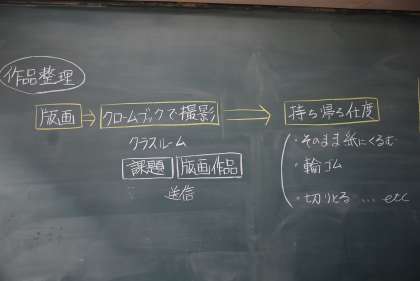 作品整理
版画 ⇒ クロームブックで撮影 ⇒ 持ち帰る仕度
クラスルーム
課題 版画作品
送信
・そのまま紙にくるむ
・輪ゴム
・切りとる … etc